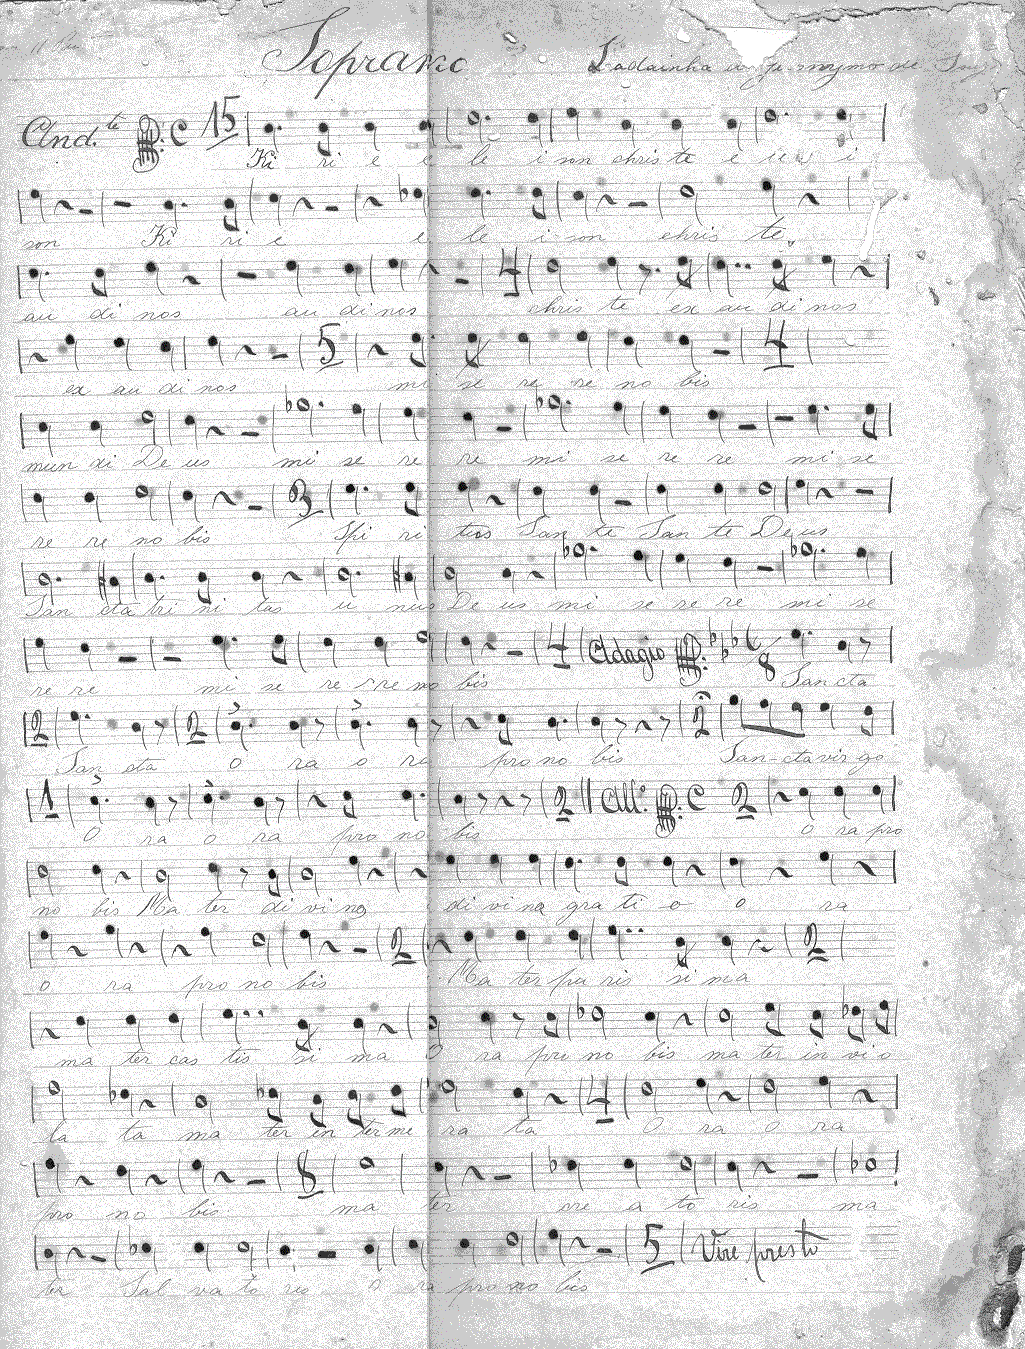 Soprano
Ladainha de Souza
And.te C 15
Ki ri e e le i son chris te e le i
son Ki ri e e le i son chris te
au di nos au di nos chris te ex au di nos
4
ex au di nos mi se re re no bis
5 4
mun di De us mi se re re mi se re re mi se
re re no bis Spi ri tus San te San te De us
3
San cta tri ni tas u nus De us mi se re re mi se
4 Adagio 6 8
re re mi se re re no bis San cta
2 2 2
San cta o ra o ra pro no bis San-cta vir go
1 2 All.o C 2
O ra o ra pro no bis O ra pro
no bis Ma ter di vi na di vi na gra ti o o ra
2 2
o ra pro no bis Ma ter pu ris si ma
ma ter cas tis si ma O ra pro no bis ma ter in vi o
4
la ta ma ter in ter me ra ta O ra o ra
8
pro no bis ma ter cre a to ris ma
5 Vire presto
ter Sal va to ris o ra pro no bis